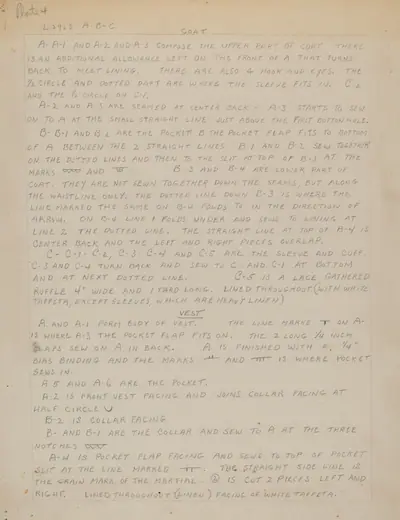 COAT
A-A-1 AND A-2 AND A-3 COMPOSE THE UPPER PART OF COAT THERE
IS AN ADDITIONAL ALLOWANCE LEFT ON THE FRONT OF A THAT TURNS
BACK TO MEET LINING. THERE ARE ALSO 6 HOOK AND EYES. THE
½ CIRCLE AND DOTTED DART ARE WHERE THE SLEEVE FITS IN.
AND THE
A-2 AND A-3 ARE SEAMED AT CENTER BACK. A-3 STARTS TO SEW
ON TO A AT THE SMALL STRAIGHT LINE JUST ABOVE THE FIRST BUTTONHOLE.
B-B-1 AND B-2 ARE THE POCKET B THE POCKET FLAP FITS TO BOTTOM
OF A BETWEEN THE 2 STRAIGHT LINES B-1 AND B-2 SEW TOGETHER
ON THE DOTTED LINES AND THEN TO THE SLIT AT TOP OF B-3 AT THE
MARKS AND B-3 AND B-4 ARE LOWER PART OF
COAT. THEY ARE NOT SEWN TOGETHER DOWN THE SEAMS, BUT ALONG
THE WAISTLINE ONLY. THE DOTTED LINE DOWN B-3 IS WHERE THE
LINE MARKED THE SAME ON B-4 FOLDS TO IN THE DIRECTION OF
ARROW. ON B-4 LINE 1 FOLDS UNDER AND SEWS TO LINING AT
LINE 2 THE DOTTED LINE. THE STRAIGHT LINE AT TOP OF B-4 IS
CENTER BACK AND THE LEFT AND RIGHT PIECES OVERLAP.
C-C-1- C-2, C-3 C-4 AND C-5 ARE THE SLEEVE AND CUFF.
C-3 AND C-4 TURN BACK AND SEW TO C AND C-1 AT BOTTOM
AND AT NEXT DOTTED LINE. C-5 IS A LACE GATHERED
RUFFLE 4" WIDE AND 1 YARD LONG. LINED THROUGHOUT (WITH WHITE
TAFFETA, EXCEPT SLEEVES, WHICH ARE HEAVY LINEN)
VEST
A AND A-1 FORM BODY OF VEST. THE LINE MARKED ON A-
IS WHERE A-3 THE POCKET FLAP FITS ON. THE 2 LONG ¼ INCH
TAPES SEW ON A IN BACK. A IS FINISHED WITH A ¼"
BIAS BINDING AND THE MARKS AND IS WHERE POCKET
SEWS IN.
A-5 AND A-6 ARE THE POCKET.
A-2 IS FRONT VEST FACING AND JOINS COLLAR FACING AT
HALF CIRCLE
B-2 IS COLLAR FACING
B- AND B-1 ARE THE COLLAR AND SEW TO A AT THE THREE
NOTCHES
A-4 IS POCKET FLAP FACING AND SEWS TO TOP OF POCKET
SLIT AT THE LINE MARKED THE STRAIGHT SIDE LINE IS
THE GRAIN MARK OF THE MARTIAL. IS CUT 2 PIECES LEFT AND
RIGHT. LINED THROUGHOUT (LINEN) FACING OF WHITE TAFFETA.